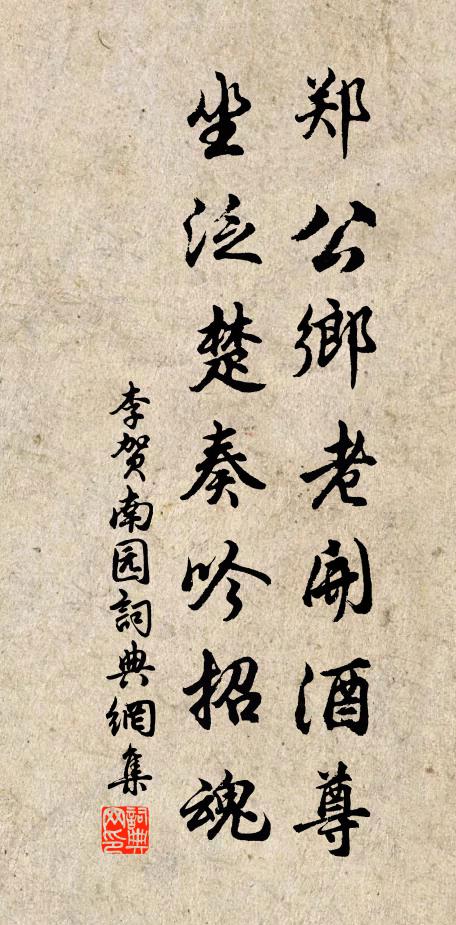 郑公鄉老開酒尊
坐泛楚奏吟招魂
李贺南园詞典網集
詞典网印